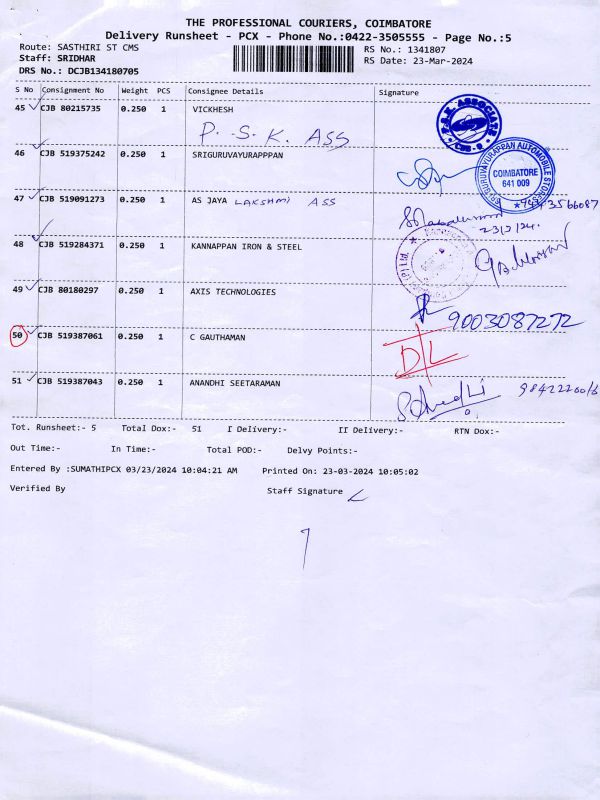 THE PROFESSIONAL COURIERS, COIMBATORE
Delivery Runsheet - PCX - Phone No.:0422-3505555 - Page No.:5
Route: SASTHIRI ST CMS RS No.: 1341807
Staff: SRIDHAR RS Date: 23-Mar-2024
DRS No.: DCJB134180705
S No Consignment No Weight PCS Consignee Details Signature
45 CJB 80215735 0.250 1 VICKHESH
P. S. K. ASS
46 CJB 519375242 0.250 1 SRIGURUVAYURAPPPAN
COIMBATORE
641 009
47 CJB 519091273 0.250 1 AS JAYA LAKSHMI ASS
23/3/24.
48 CJB 519284371 0.250 1 KANNAPPAN IRON & STEEL
49 CJB 80180297 0.250 1 AXIS TECHNOLOGIES
9003087272
50 CJB 519387061 0.250 1 C GAUTHAMAN
D/L
51 CJB 519387043 0.250 1 ANANDHI SEETARAMAN
Tot. Runsheet:- 5 Total Dox:- 51 I Delivery:- II Delivery:- RTN Dox:-
Out Time:- In Time:- Total POD:- Delvy Points:-
Entered By :SUMATHIPCX 03/23/2024 10:04:21 AM Printed On: 23-03-2024 10:05:02
Verified By Staff Signature